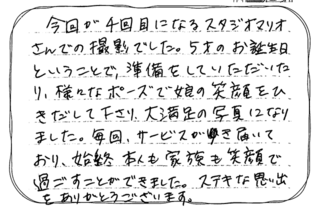 今回が4回目になるスタジオマリオ
さんでの撮影でした。5才のお誕生日
ということで、準備をしていただいた
り、様々なポーズで娘の笑顔をひ
きだして下さり、大満足の写真になり
ました。毎回、サービスが行き届いて
おり、始終 本人も家族も笑顔で
過ごすことができました。ステキな思い出
をありがとうございます。